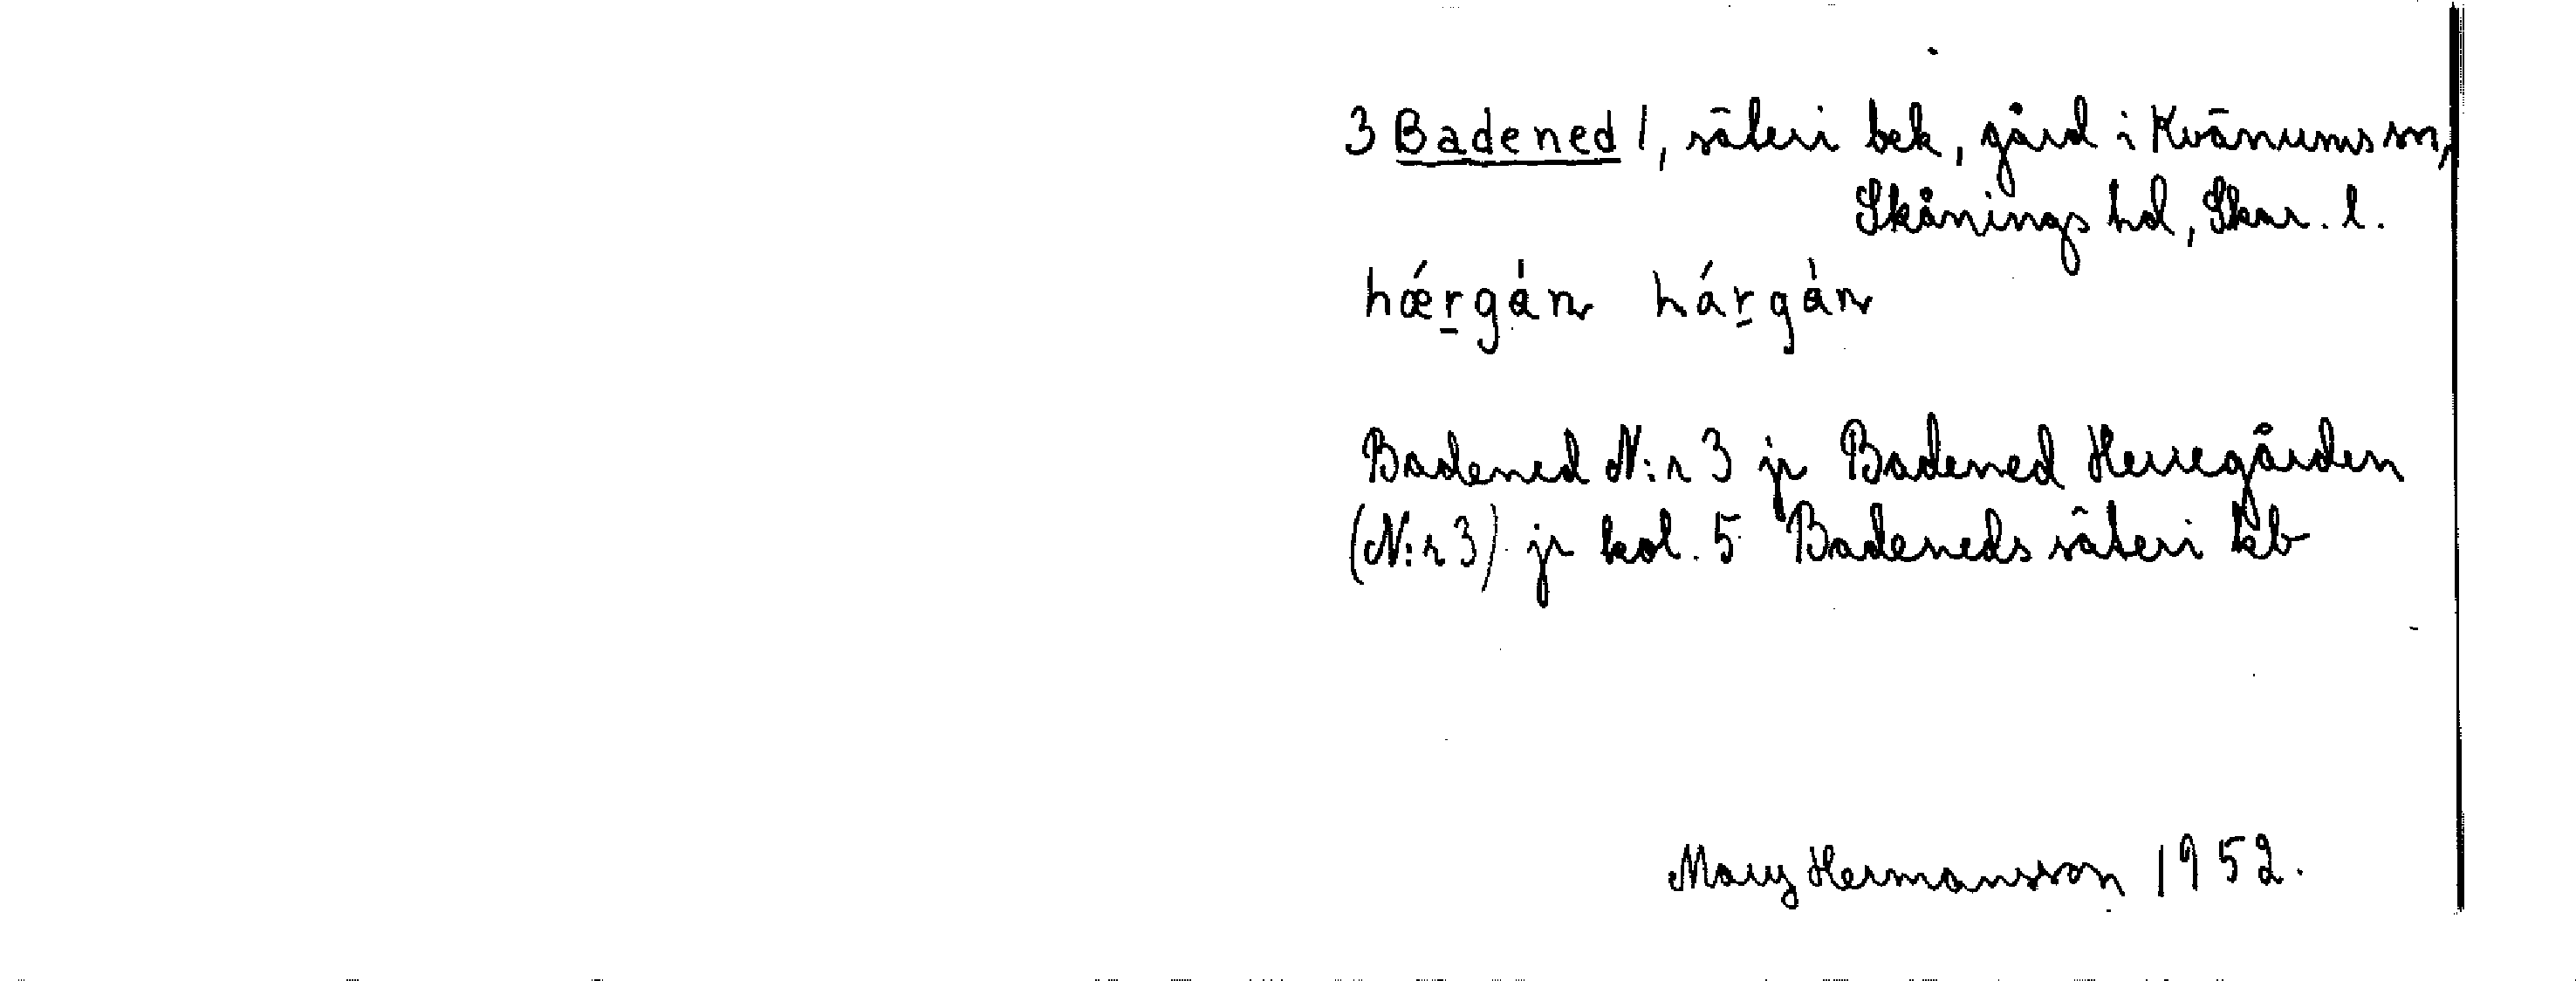 3 Badened 1, säteri bek, gård i Kvänums sn,
Skånings hd, Skar. l.
hǽrgàn hárgàn
Badened N:r 3 jr Badened Herregården
(N:r 3) jr kol. 5 Badeneds säteri kb
Mary Hermansson 1952.